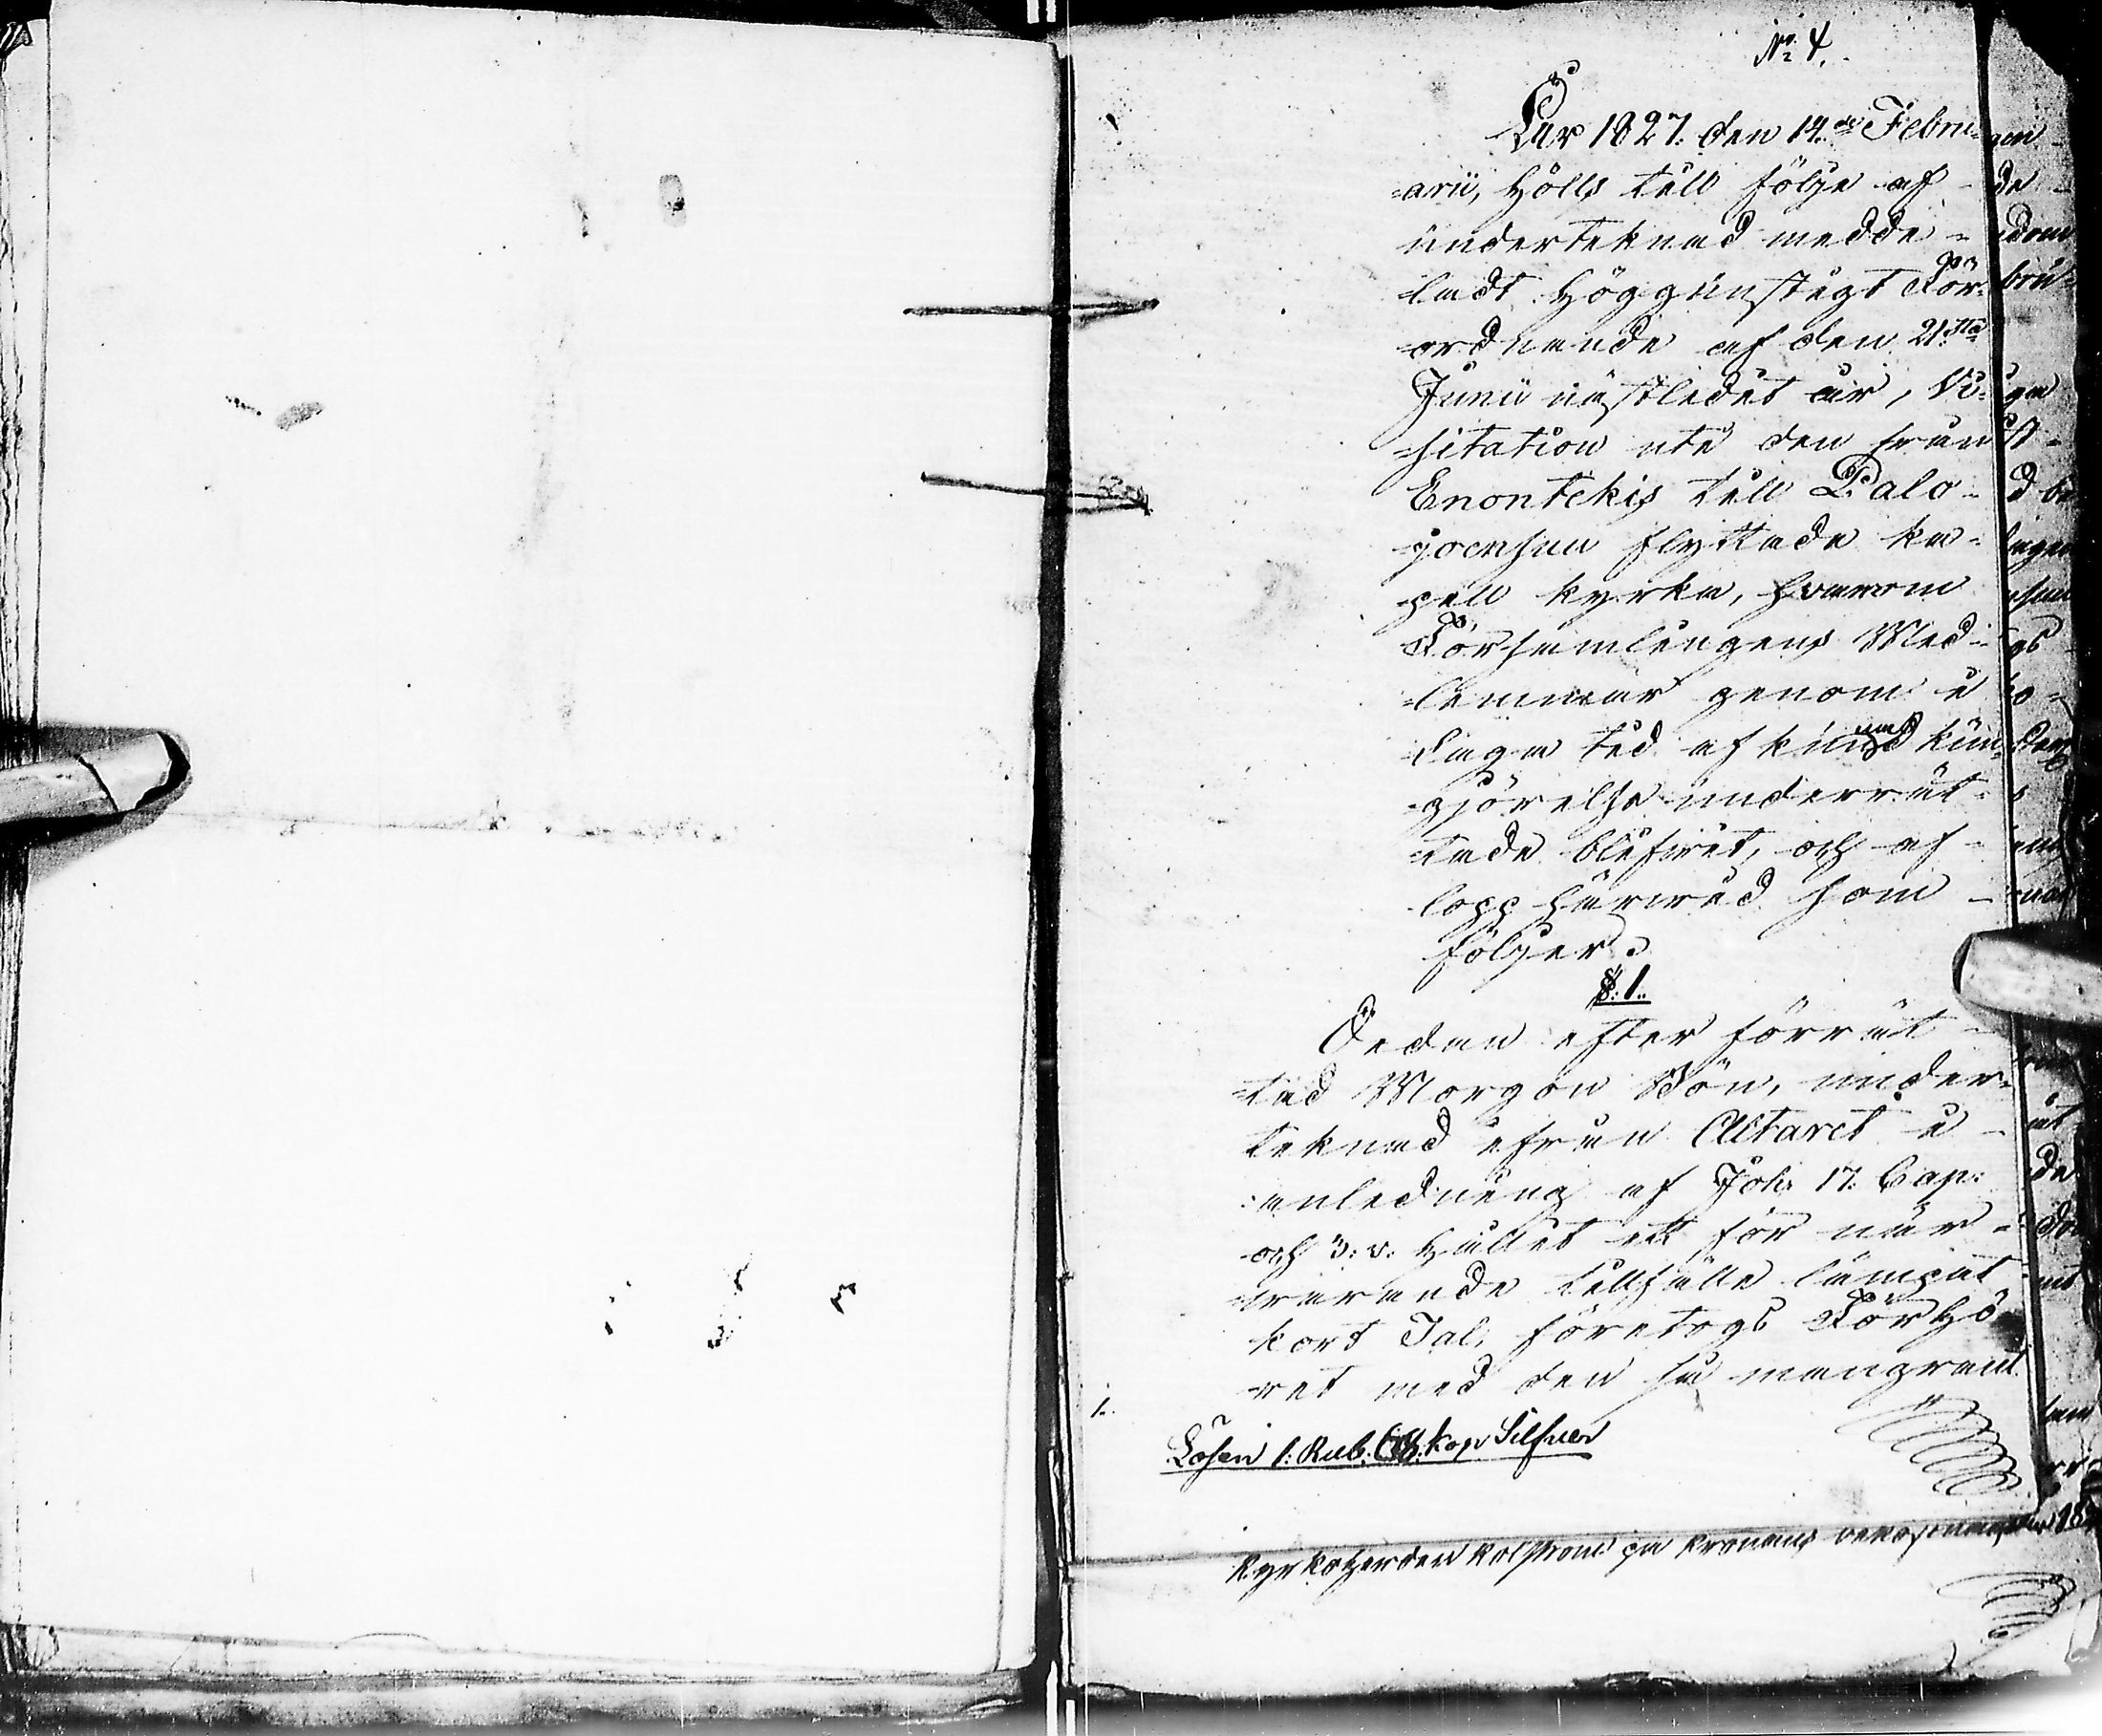 No 4.
År 1827. den 14.de Febru-
-arii, hölls till följe af
underteknad medde-
ladt Höggunstigt För-
ordnande af den 21sta
Junii nästledit år, Vi-
sitation uti den från
Enontekis till Palo-
jocnsuu flyttade ka-
pell kyrka, hvarom
Församlingens Med-
lemmar genom i
laga tid afkunnad kun-
gjörelse underrät-
tade blifwit, och af-
lopp härwid som
följer.
§. 1.
Sedan efter förrät-
tad Morgon Bön, under-
teknad ifrån Altaret i
anledning af Joh. 17. Cap:
och 3: v. hållit ett för när-
warande tillfälle lämpat
kort Tal, företogs Förhö-
ret med den så mangrant
1.
Lösen 1: Rub. kop Silfwer
Kyrkoherden på Kronans